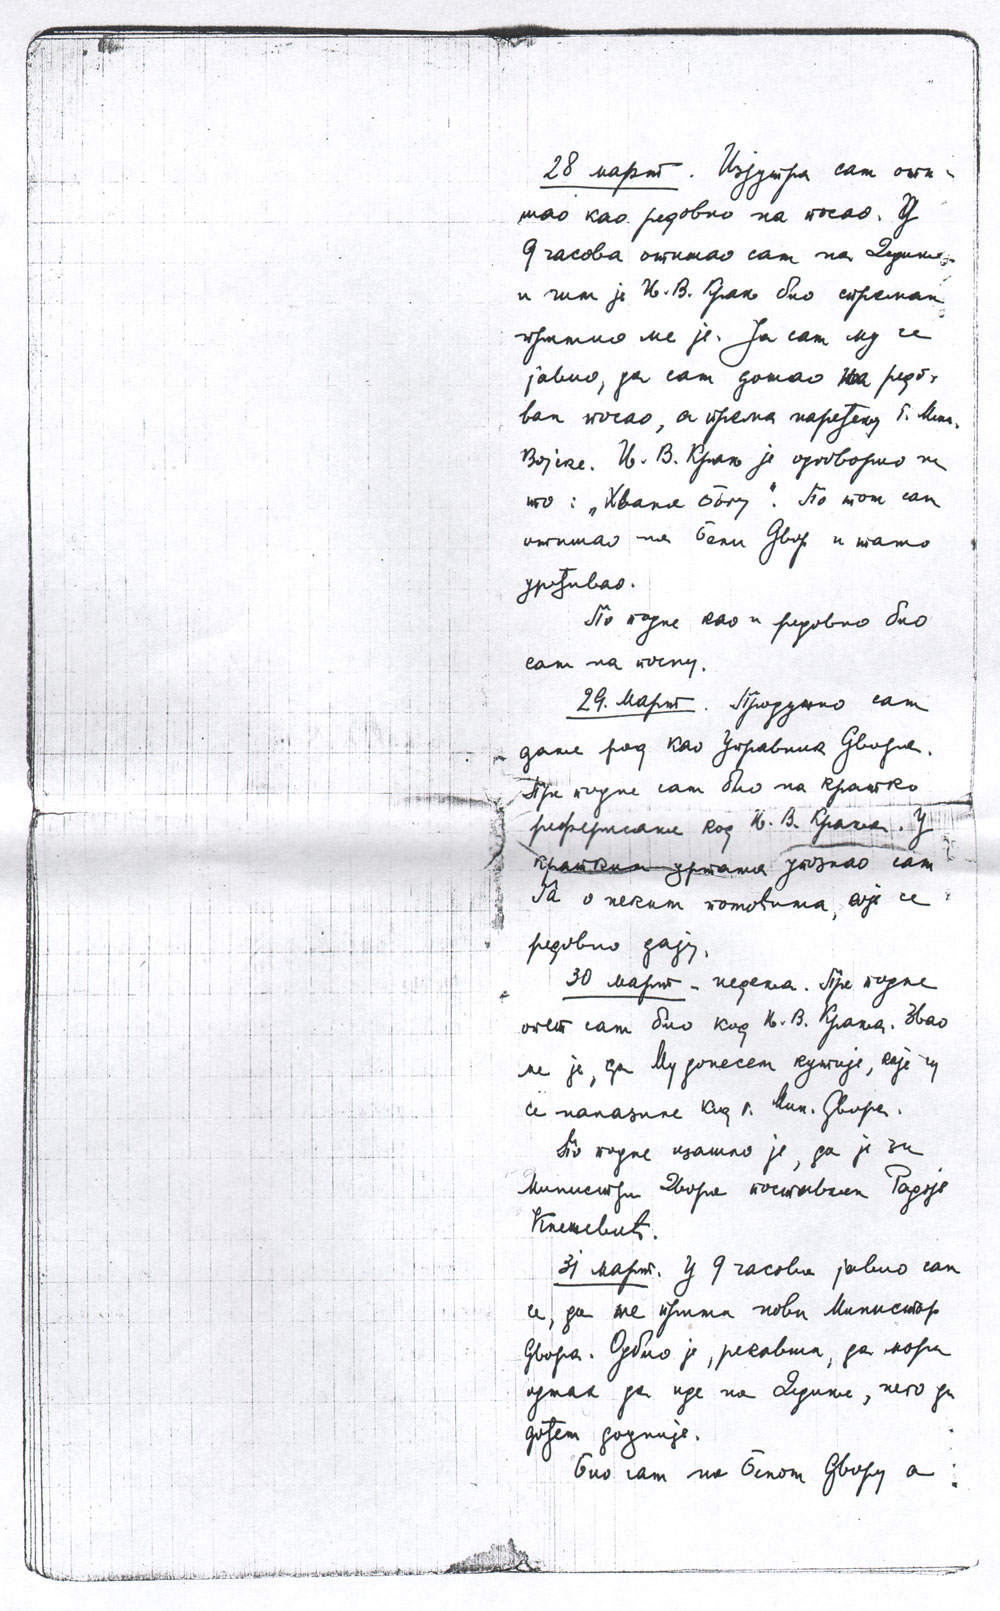 28 март. Изјутра сам оти-
шао као редовно на посао. У
9 часова отишао сам на Дедиње
и чим је Њ. В. Краљ био спреман
примио ме је. Ја сам му се
јавио, да сам дошао на редо-
ван посао, а према наређењу г. Мин.
Војске. Њ. В. Краљ је одговорио на
то: „Хвала Богу“. По том сам
отишао на Бели Двор и тамо
уређивао.
По подне као и редовно био
сам на послу.
29. Март. Продужио сам
даље рад као Управник Двора.
Пре подне сам био на кратко
реферисање код Њ. В. Краља. У
кратким цртама упознао сам
Га о неким помоћима, које се
редовно дају.
30 март - недеља. Пре подне
опет сам био код Њ. В. Краља. Звао
ме је, да Му донесем кутије, које су
се налазиле код г. Мин. Двора.
По подне изашло је, да је за
Министра Двора постављен Радоје
Кнежевић.
31 март. У 9 часова јавио сам
се, да ме прима нови Министар
Двора. Одбио је, рекавши, да мора
одмах да иде на Дедиње, него да
дођем доцније.
Био сам на Белом Двору а